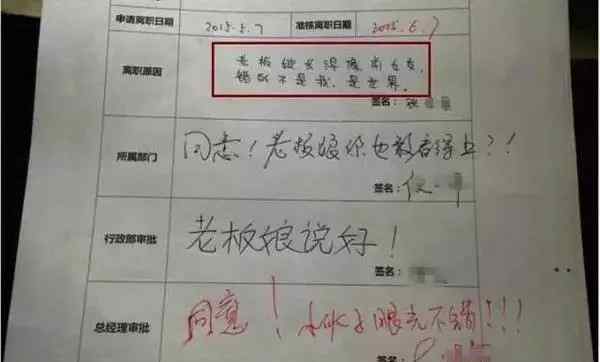 申请离职日期 2015.5.7 准核离职日期 2015.6.7
老板娘长得像前女友,
离职原因 错的不是我,是世界。
签名:
同志!老板娘你也敢看得上?!
所属部门
签名:
老板娘说好!
行政部审批
签名:
同意!小伙子眼光不错!!!
总经理审批
签名: